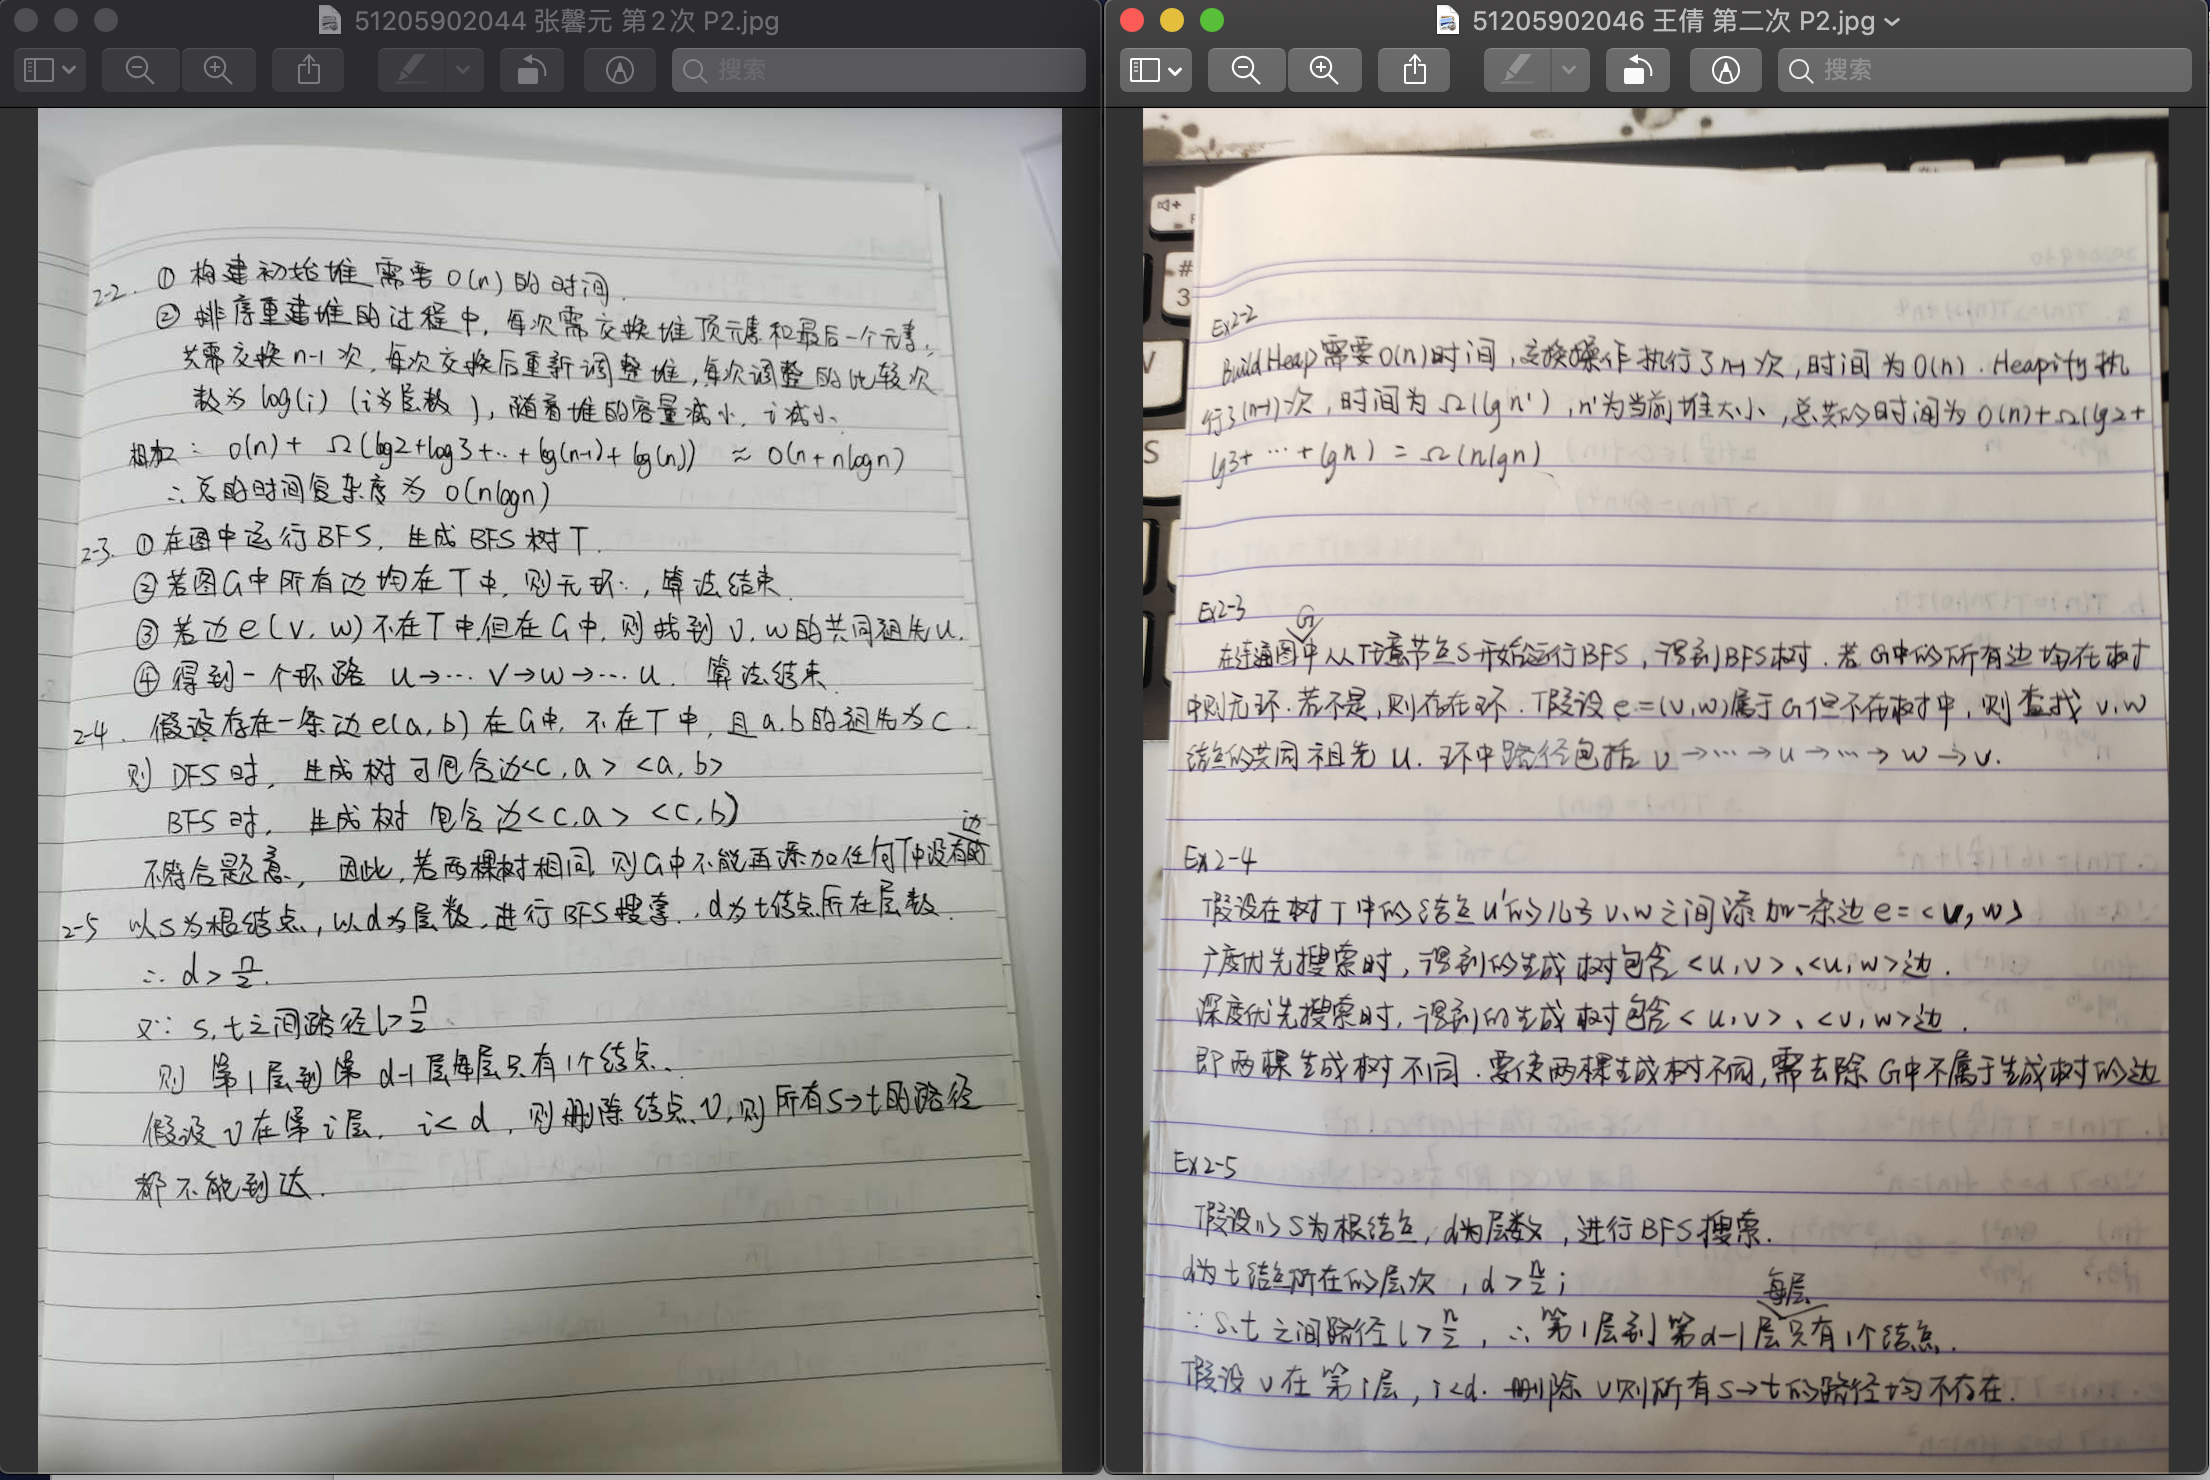 51205902044 张馨元 第2次 P2.jpg
搜索
2-2. ① 构建初始堆需要O(n)的时间.
② 排序重建堆的过程中,每次需交换堆顶元素和最后一个元素,
共需交换n-1次,每次交换后重新调整堆,每次调整的比较次
数为log(i) (i为层数),随着堆的容量减小,i减小.
相加: O(n)+ Ω(log2+log3+..+log(n-1)+log(n)) ≈ O(n+nlogn)
∴总的时间复杂度为 O(nlogn)
2-3. ①在图中运行BFS,生成BFS树T.
②若图G中所有边均在T中,则无环,算法结束.
③若边e(v,w)不在T中,但在G中,则找到v,w的共同祖先u.
④得到一个环路 u→… v→w→… u. 算法结束.
2-4. 假设存在一条边e(a,b)在G中,不在T中,且a.b的祖先为c.
则 DFS时,生成树可包含边<c,a> <a,b>
BFS时,生成树包含边<c,a> <c,b)
边
不符合题意,因此,若两棵树相同,则G中不能再添加任何T中没有的
2-5 以s为根结点,以d为层数,进行BFS搜索.,d为t结点所在层数.
∴ d>n/2.
又∵ s,t之间路径l>n/2
则 第1层到第d-1层每层只有1个结点.
假设v在第i层, i<d,则删除结点v,则所有s→t的路径
都不能到达.
51205902046 王倩 第二次 P2.jpg
搜索
#
3
S
Ex2-2
BuildHeap需要O(n)时间,交换操作执行了n-1次,时间为O(n).Heapify执
行了(n-1)次,时间为Ω(lgn'),n'为当前堆大小,总共的时间为O(n)+Ω(lg2+
lg3+…+lgn)=Ω(nlgn)
Ex2-3
G
在连通图中从任意节点S开始运行BFS,得到BFS树.若G中的所有边均在树
中则无环.若不是,则存在环.假设e=(v,w)属于G但不在树中,则查找v,w
结点的共同祖先u.环中路径包括 v→…→u→…→w→v.
Ex2-4
假设在树T中的结点u的儿子v,w之间添加一条边e=<v,w>
广度优先搜索时,得到的生成树包含<u,v>、<u,w>边.
深度优先搜索时,得到的生成树包含<u,v>、<v,w>边.
即两棵生成树不同.要使两棵生成树不同,需去除G中不属于生成树的边
Ex2-5
假设以s为根结点,d为层数,进行BFS搜索.
d为t结点所在的层次,d>n/2;
每层
∵s,t之间路径l>n/2,∴第1层到第d-1层只有1个结点.
假设v在第i层,i<d.删除v则所有s→t的路径均不存在.